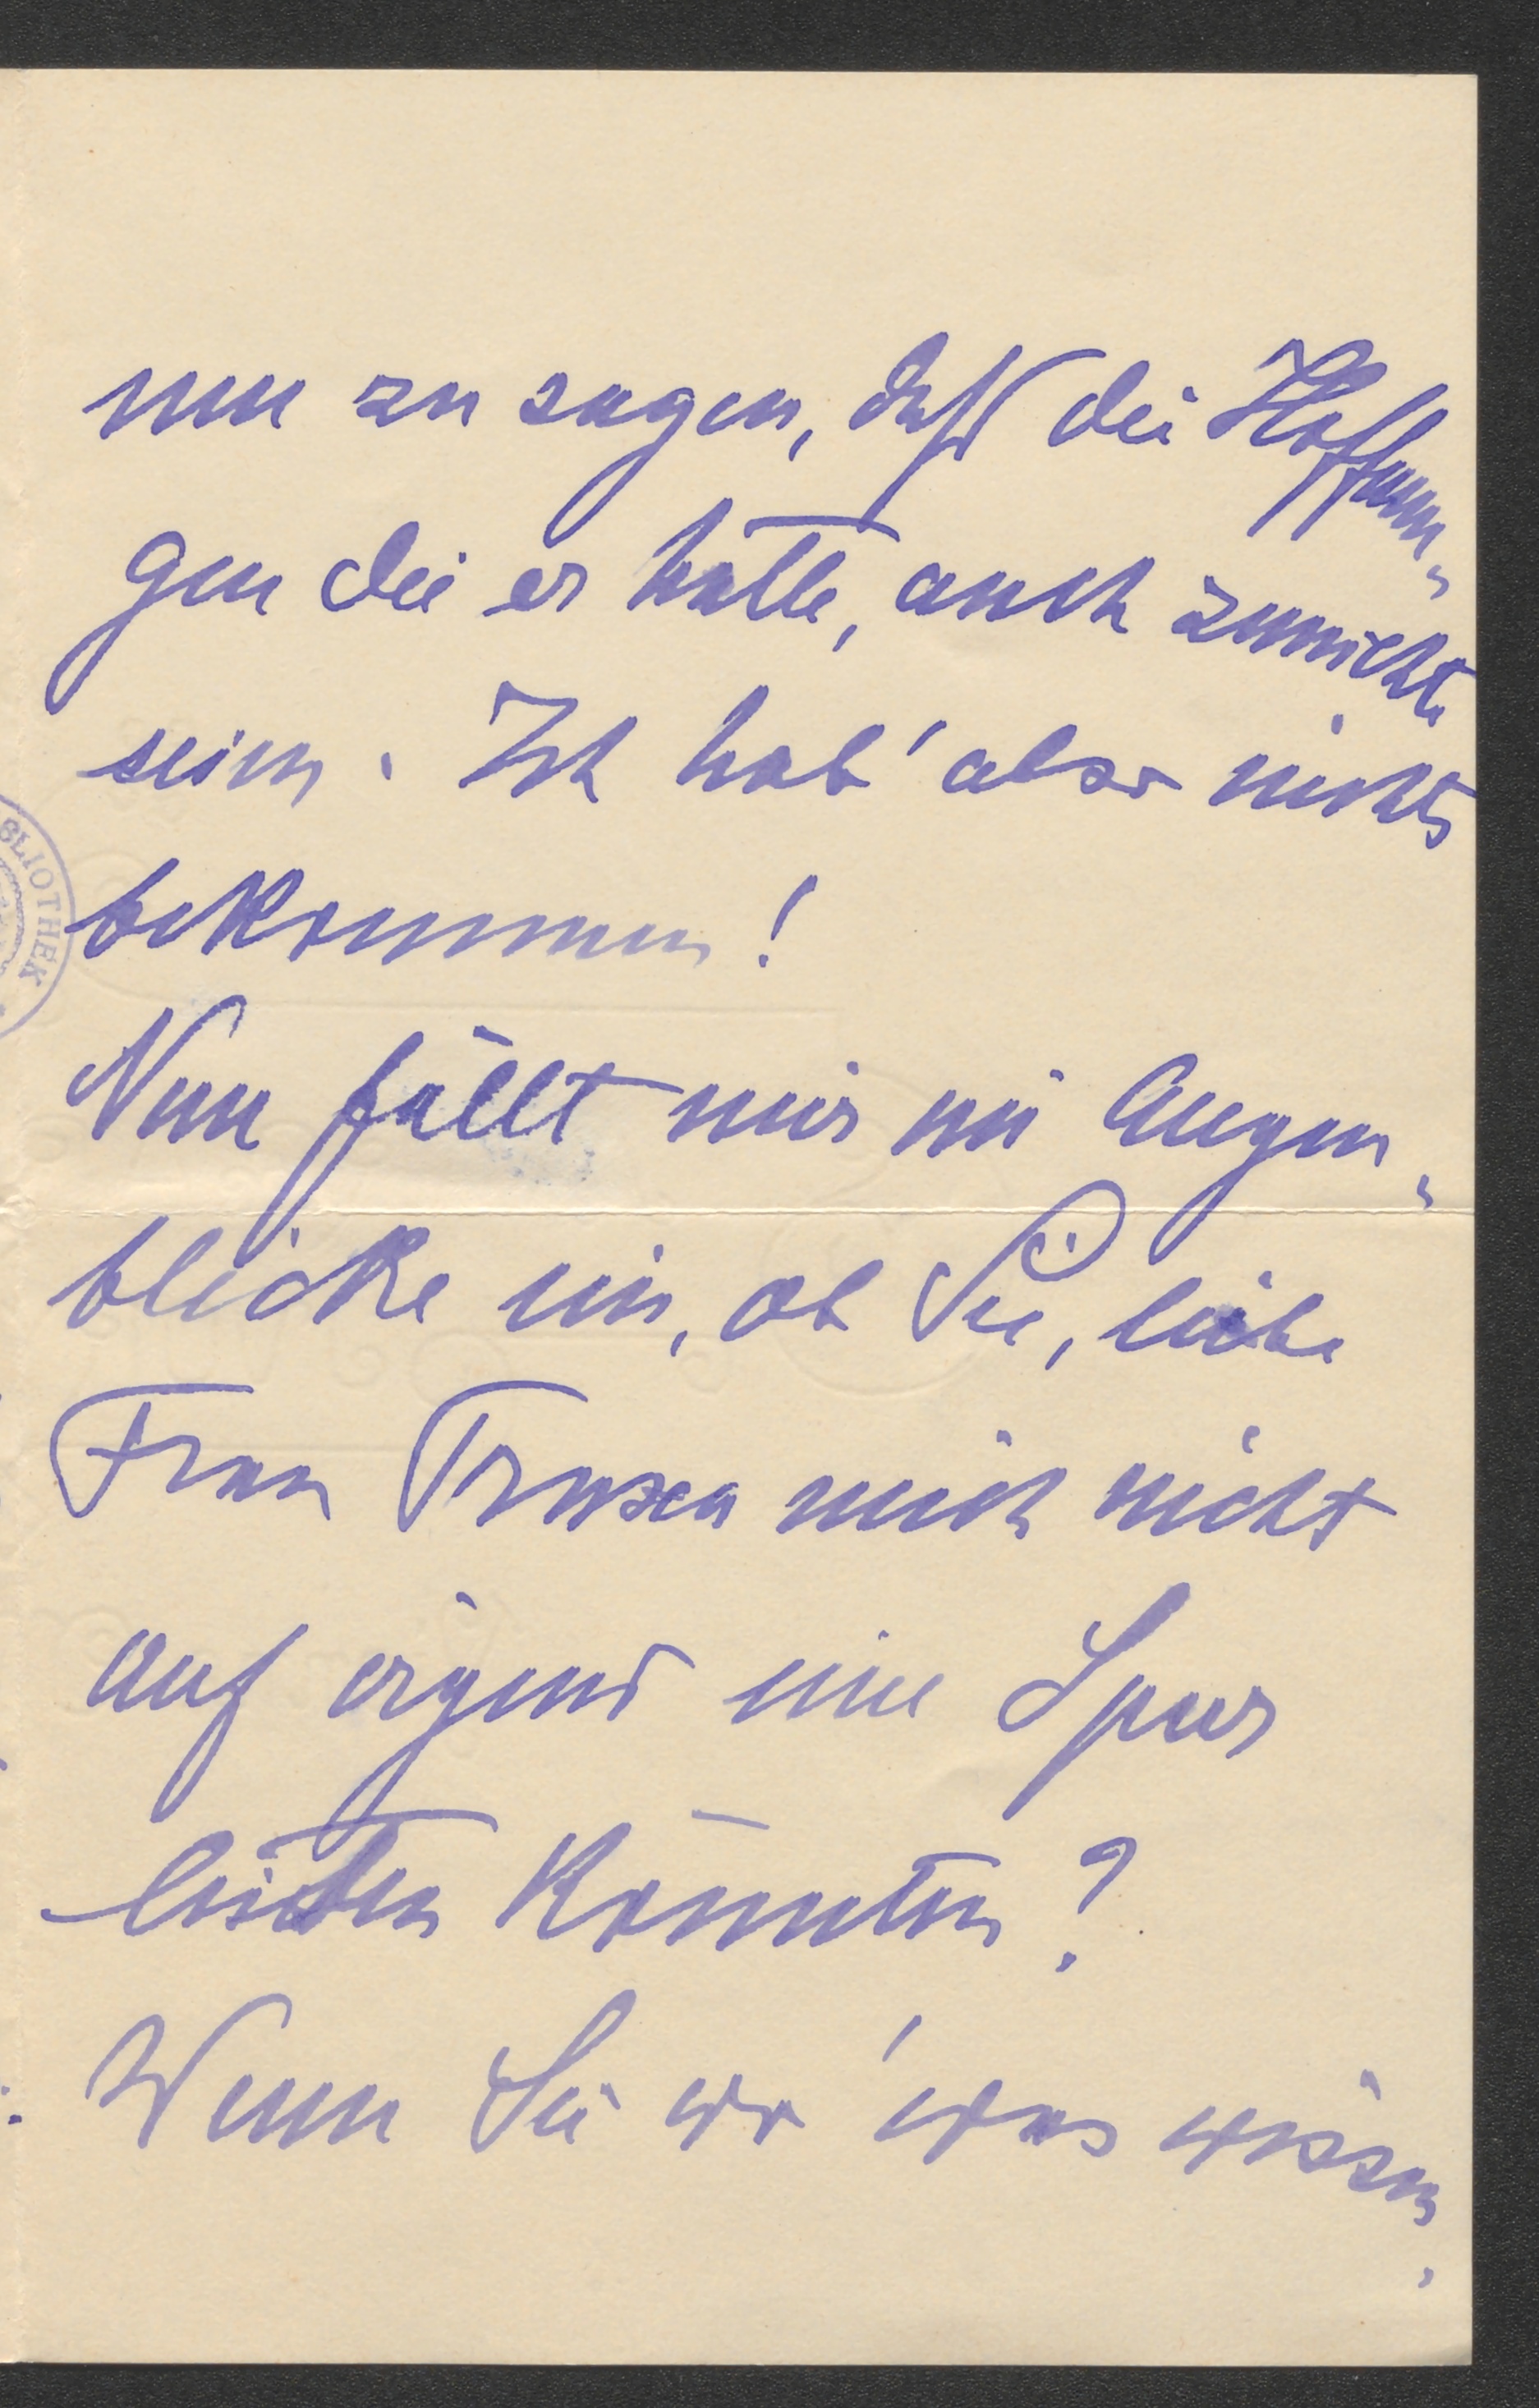 nun zu sagen, daß die Hoffnun-
gen die er hatte, auch zunichte
seien. Ich hab' also nichts
bekommen!
Nun fällt mir im Augen-
blicke ein, ob Sie, liebe
Frau mich nicht
auf irgend eine Spur
leiten könnten?
Wenn Sie wo 'was wissen,
BLIOTHEK